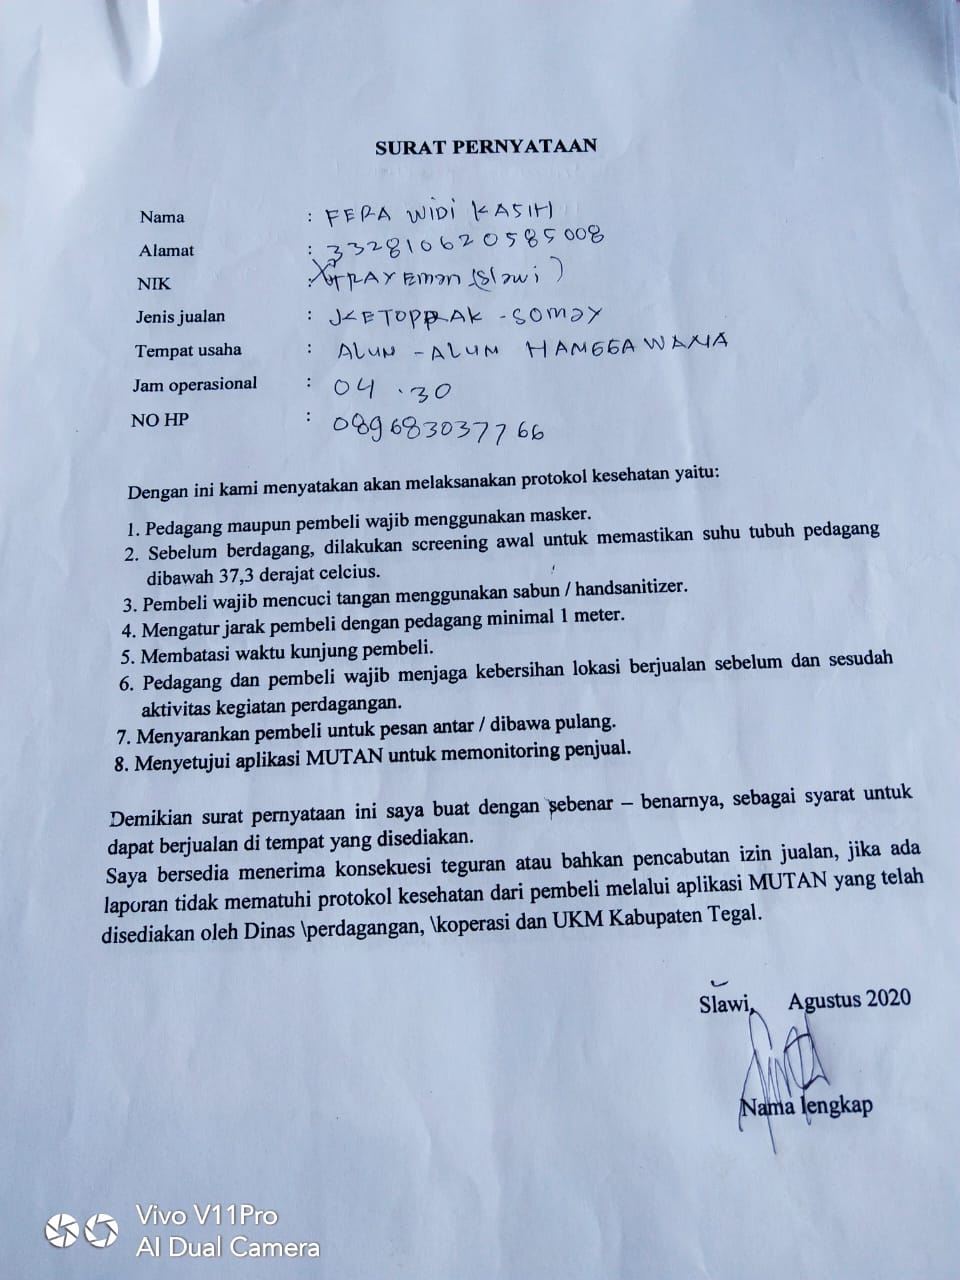 SURAT PERNYATAAN
Nama : FERA WIDI KASIH
Alamat : 332810620585008
NIK : TRAYEman (Slawi)
Jenis jualan : KETOPRAK - SOMAY
Tempat usaha : ALUN - ALUN HANGGAWANA
Jam operasional : 04.30
NO HP : 089683037766
Dengan ini kami menyatakan akan melaksanakan protokol kesehatan yaitu:
1. Pedagang maupun pembeli wajib menggunakan masker.
2. Sebelum berdagang, dilakukan screening awal untuk memastikan suhu tubuh pedagang
dibawah 37,3 derajat celcius.
3. Pembeli wajib mencuci tangan menggunakan sabun / handsanitizer.
4. Mengatur jarak pembeli dengan pedagang minimal 1 meter.
5. Membatasi waktu kunjung pembeli.
6. Pedagang dan pembeli wajib menjaga kebersihan lokasi berjualan sebelum dan sesudah
aktivitas kegiatan perdagangan.
7. Menyarankan pembeli untuk pesan antar / dibawa pulang.
8. Menyetujui aplikasi MUTAN untuk memonitoring penjual.
Demikian surat pernyataan ini saya buat dengan sebenar – benarnya, sebagai syarat untuk
dapat berjualan di tempat yang disediakan.
Saya bersedia menerima konsekuesi teguran atau bahkan pencabutan izin jualan, jika ada
laporan tidak mematuhi protokol kesehatan dari pembeli melalui aplikasi MUTAN yang telah
disediakan oleh Dinas \perdagangan, \koperasi dan UKM Kabupaten Tegal.
Slawi, Agustus 2020
Nama lengkap
Vivo V11Pro
AI Dual Camera